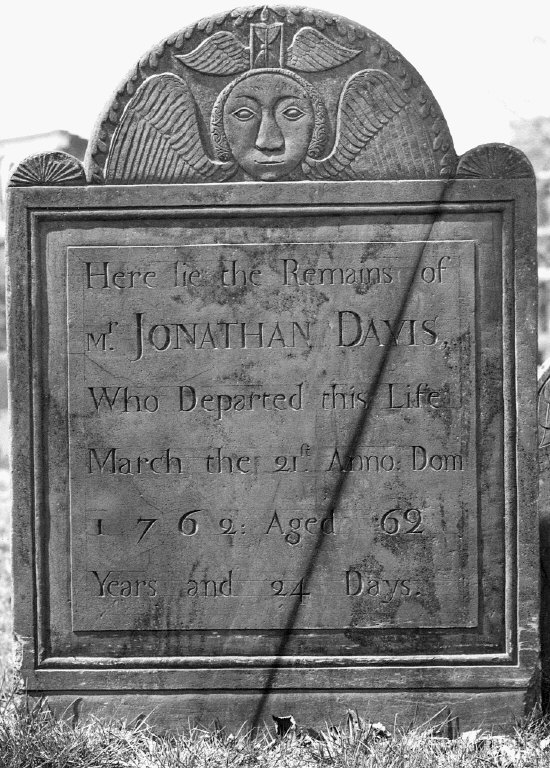 Here lie the Remains of
Mr. JONATHAN DAVIS,
Who Departed this Life
March the 21st. Anno: Dom
1762: Aged 62
Years and 24 Days.